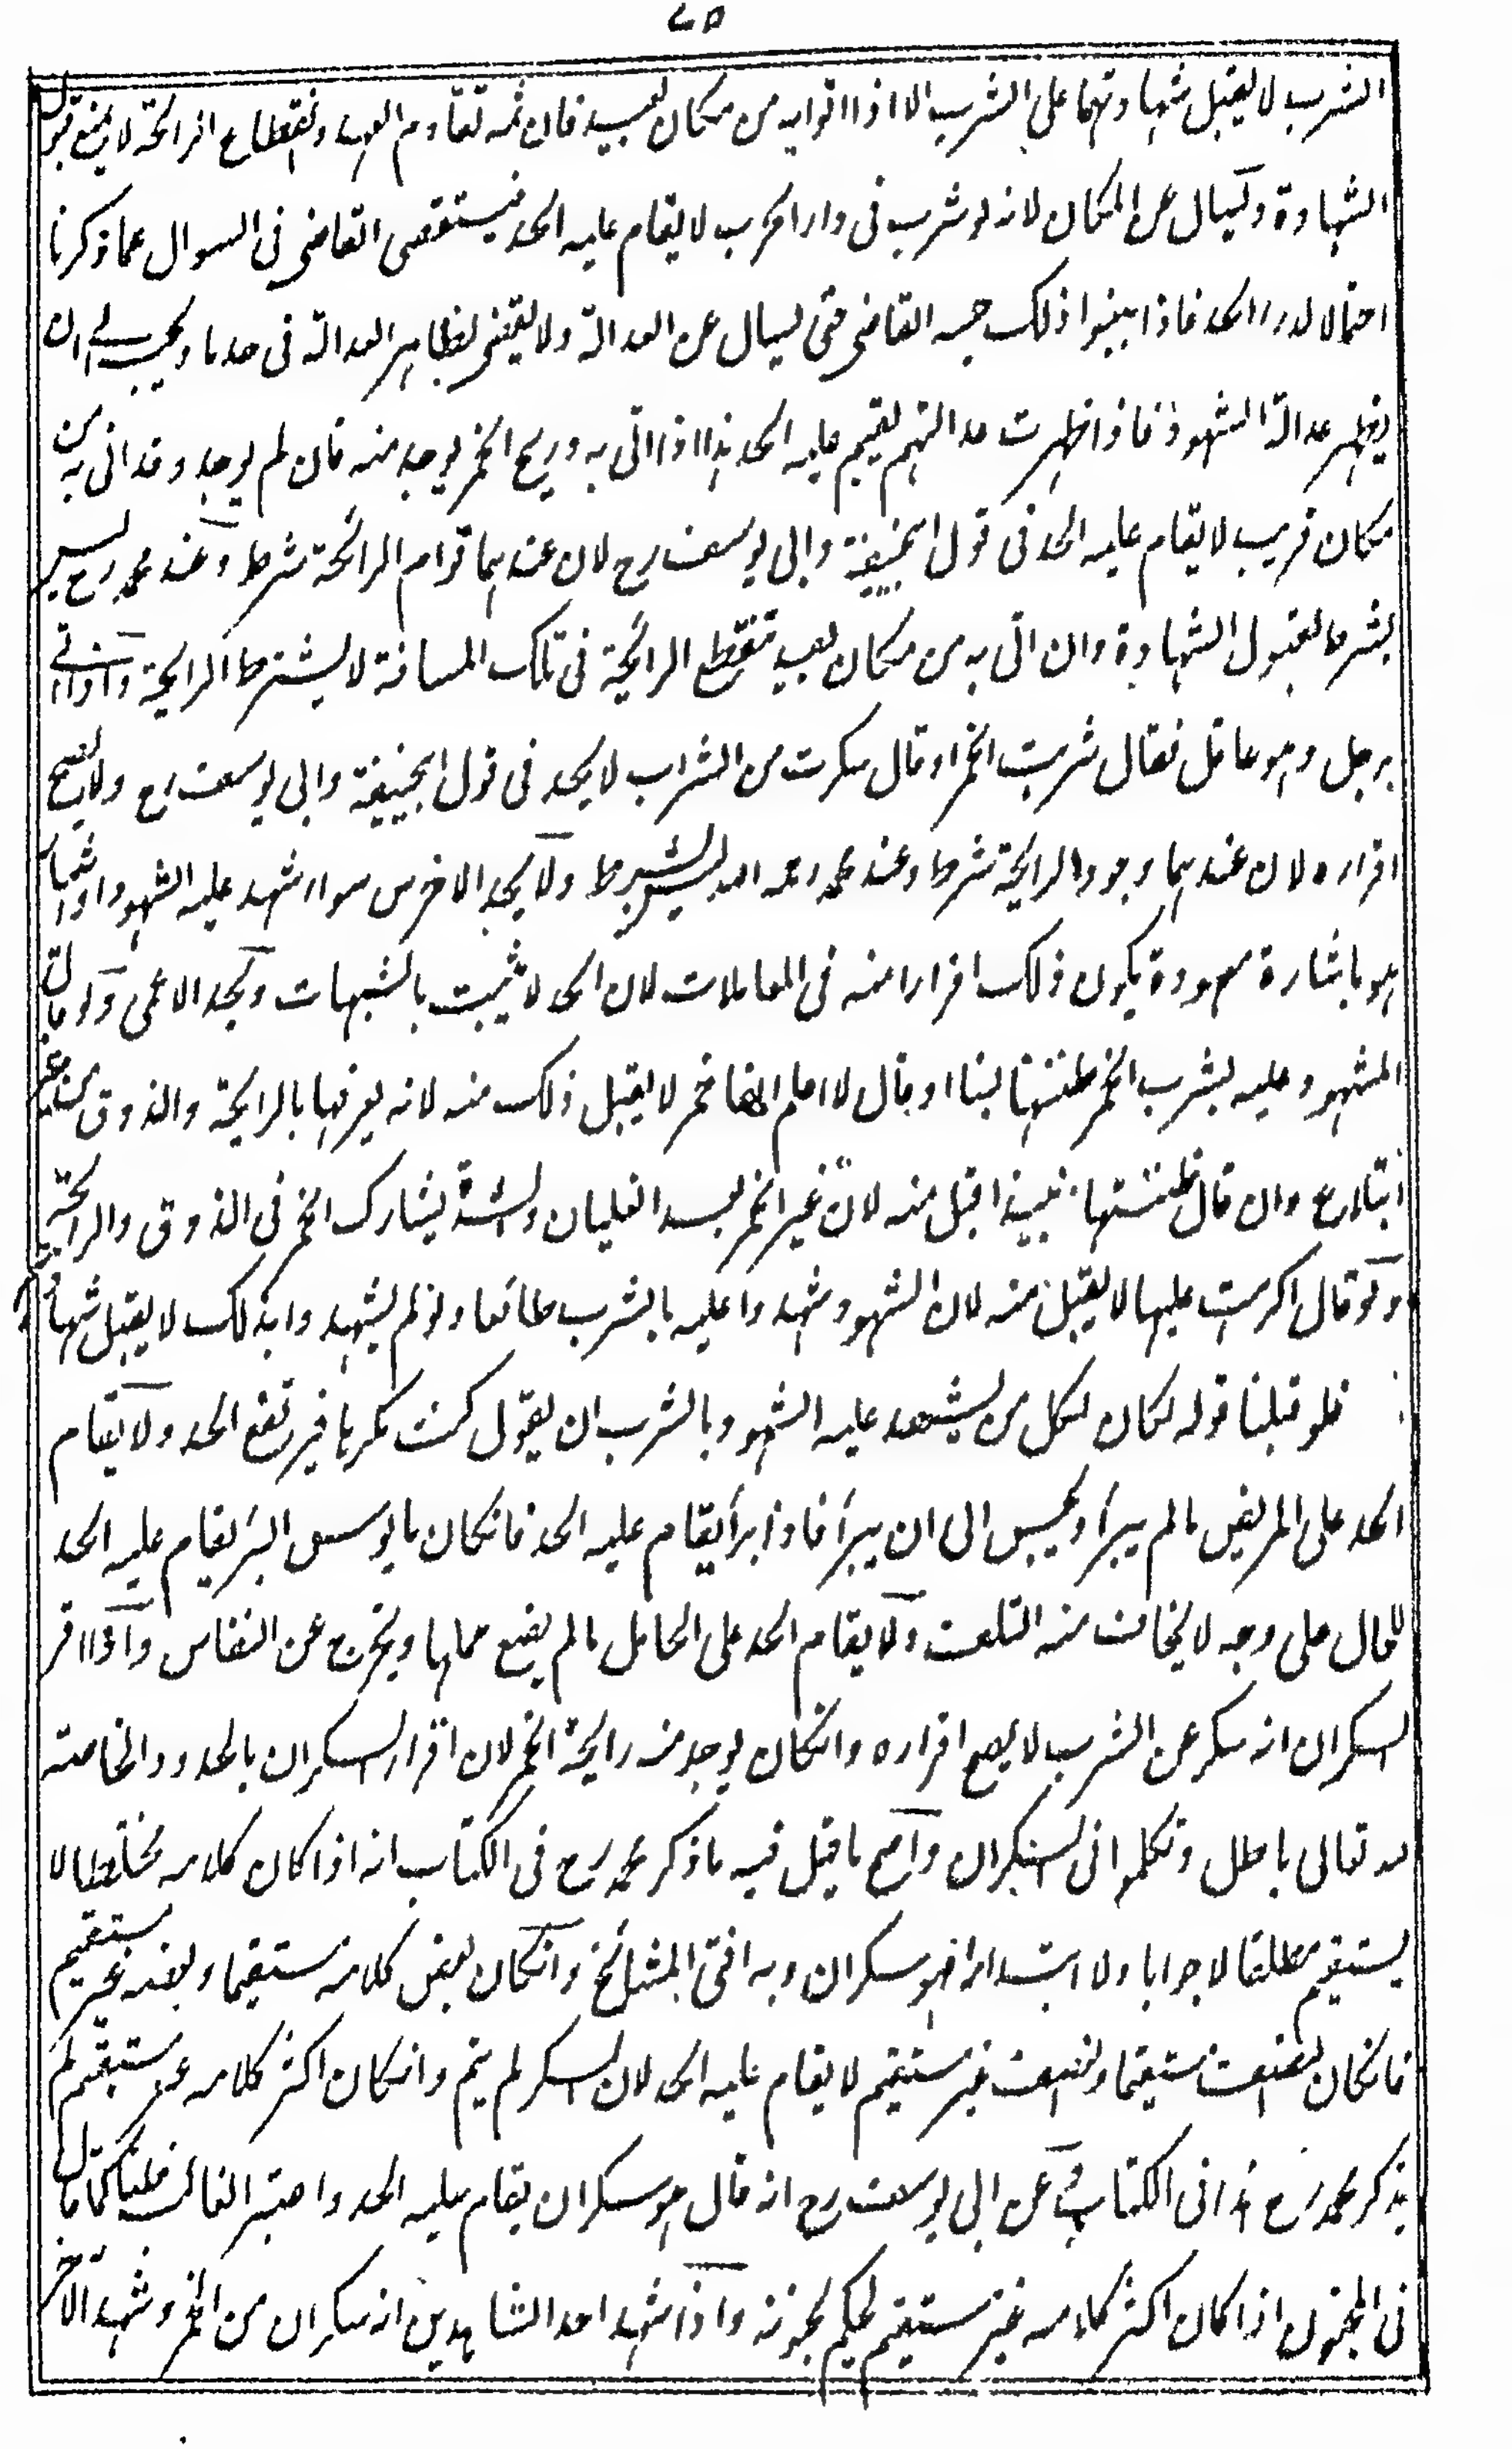 ٧٥
الشرب لا يقبل شهادتهما على الشرب الا اذا اتوا به من مكان بعيد فان ثمه تقادم العهد وانقطاع الرائحة لا يمنع قبول
الشهادة ويسال عن المكان لانه لو شرب فى دار الحرب لا يقام عليه الحد فيستقصى القاضى فى السوال عما ذكرنا
احتمالا لدرء الحد فاذا بينوا ذلك حبسه القاضى حتى يسال عن العدالة ولا يقضى بظاهر العدالة فى حد ما ويحبس الى ان
يظهر عدالة الشهود فاذا ظهرت عدالتهم يقيم عليه الحد هذا اذا اتى به وريح الخمر يوجد منه فان لم يوجد وقد اتى به من
مكان قريب لا يقام عليه الحد فى قول ابيحنيفة وابى يوسف رح لان عندهما قوام الرائحة شرط وعند محمد رح ليس
بشرط لقبول الشهادة وان اتى به من مكان بعيد تنقطع الرائحة فى تلك المسافة لا يشترط الرايحة واذا اتى
برجل وهو عاقل فقال شربت الخمر او قال سكرت من الشراب لا يحد فى قول ابيحنيفة وابى يوسف رح ولا يصح
اقراره لان عندهما وجود الرايحة شرط وعند محمد رحمه الله ليس بشرط ولا يحد الاخرس سواء شهد عليه الشهود او اشار
هو باشارة معهودة يكون ذلك اقرارا منه فى المعاملات لان الحد لا يثبت بالشبهات ويحد الاعمى ولو قال
المشهود عليه بشرب الخمر ظننتها لبنا او قال لا اعلم انها خمر لا يقبل ذلك منه لانه يعرفها بالرايحة والذوق من غير
ابتلاع وان قال ظننتها نبيذا قبل منه لان غير الخمر بعد الغليان والشدة يشارك الخمر فى الذوق والرائحة
ولو قال اكرهت عليها لا يقبل منه لان الشهود شهدوا عليه بالشرب طائعا ولو لم يشهدوا بذلك لا يقبل شهادتهم
فلو قبلنا قوله لكان لكل من يشهد عليه الشهود بالشرب ان يقول كنت مكرها فيرتفع الحد ولا يقام
الحد على المريض مالم يبرأ ويحبس الى ان يبرأ فاذا برأ يقام عليه الحد فانكان مايوس البرء يقام عليه الحد
للحال على وجه لا يخاف منه التلف ولا يقام الحد على الحامل مالم يضع حملها ويخرج عن النفاس واذا اقر
السكران انه سكر عن الشرب لا يصح اقراره وانكان يوجد منه رايحة الخمر لان اقرار السكران بالحدود الخاصة
لله تعالى باطل وتكلموا فى السكران واصح ما قيل فيه ما ذكر محمد رح فى الكتاب انه اذا كان كلامه مختلطا لا
يستقيم مطلقا لا جوابا ولا ابتداء فهو سكران وبه افتى المشائخ وانكان بعض كلامه مستقيما وبعضه غير مستقيم
فانكان نصفه مستقيما ونصفه غير مستقيم لا يقام عليه الحد لان السكر لم يتم وانكان اكثر كلامه غير مستقيم لم
يذكر محمد رح هذا فى الكتاب وعن ابى يوسف رح انه قال هو سكران يقام عليه الحد واعتبر الغالب كما قال
فى المجنون اذا كان اكثر كلامه غير مستقيم يحكم بجنونه واذا شهد احد الشاهدين انه سكران من الخمر وشهد الآخر